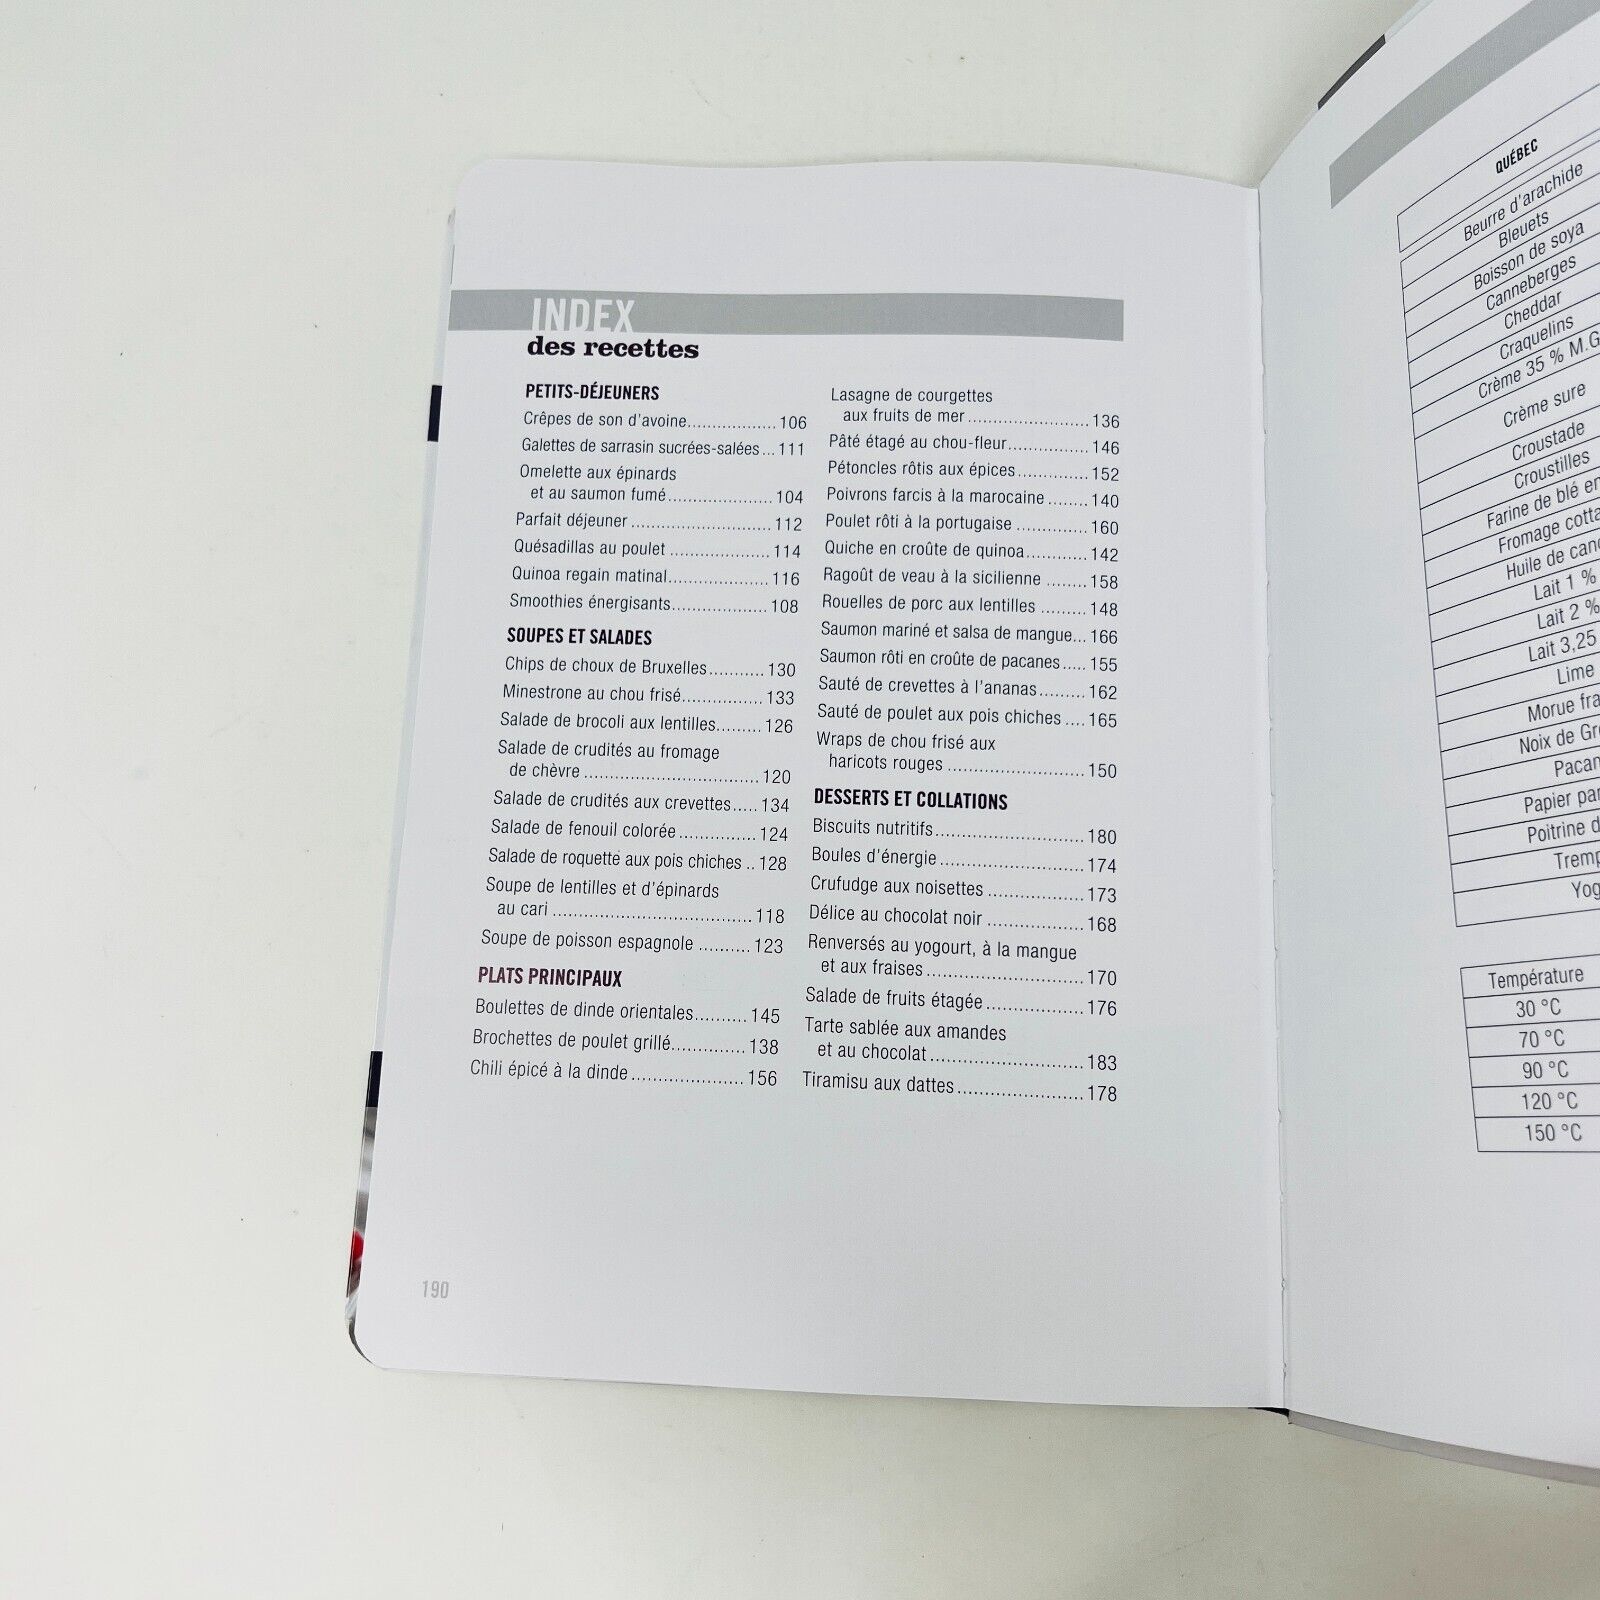 INDEX
des recettes
PETITS-DÉJEUNERS
Crêpes de son d'avoine.................. 106
Galettes de sarrasin sucrées-salées... 111
Omelette aux épinards
et au saumon fumé..................... 104
Parfait déjeuner ........................... 112
Quésadillas au poulet .................... 114
Quinoa regain matinal.................... 116
Smoothies énergisants................... 108
SOUPES ET SALADES
Chips de choux de Bruxelles........... 130
Minestrone au chou frisé................ 133
Salade de brocoli aux lentilles......... 126
Salade de crudités au fromage
de chèvre .................................. 120
Salade de crudités aux crevettes..... 134
Salade de fenouil colorée ............... 124
Salade de roquette aux pois chiches .. 128
Soupe de lentilles et d'épinards
au cari ...................................... 118
Soupe de poisson espagnole .......... 123
PLATS PRINCIPAUX
Boulettes de dinde orientales.......... 145
Brochettes de poulet grillé.............. 138
Chili épicé à la dinde ...................... 156
Lasagne de courgettes
aux fruits de mer ........................ 136
Pâté étagé au chou-fleur................ 146
Pétoncles rôtis aux épices............... 152
Poivrons farcis à la marocaine ........ 140
Poulet rôti à la portugaise .............. 160
Quiche en croûte de quinoa............ 142
Ragoût de veau à la sicilienne ........ 158
Rouelles de porc aux lentilles ......... 148
Saumon mariné et salsa de mangue... 166
Saumon rôti en croûte de pacanes..... 155
Sauté de crevettes à l'ananas......... 162
Sauté de poulet aux pois chiches .... 165
Wraps de chou frisé aux
haricots rouges ........................... 150
DESSERTS ET COLLATIONS
Biscuits nutritifs............................. 180
Boules d'énergie ............................ 174
Crufudge aux noisettes .................. 173
Délice au chocolat noir ................... 168
Renversés au yogourt, à la mangue
et aux fraises ............................... 170
Salade de fruits étagée ................... 176
Tarte sablée aux amandes
et au chocolat .............................. 183
Tiramisu aux dattes ........................ 178
190
QUÉBEC
Beurre d'arachide
Bleuets
Boisson de soya
Canneberges
Cheddar
Craquelins
Crème 35 % M.G
Crème sure
Croustade
Croustilles
Farine de blé en
Fromage cotta
Huile de cano
Lait 1 %
Lait 2 %
Lait 3,25
Lime
Morue fra
Noix de Gr
Pacan
Papier par
Poitrine d
Tremp
Yog
Température
30 °C
70 °C
90 °C
120 °C
150 °C